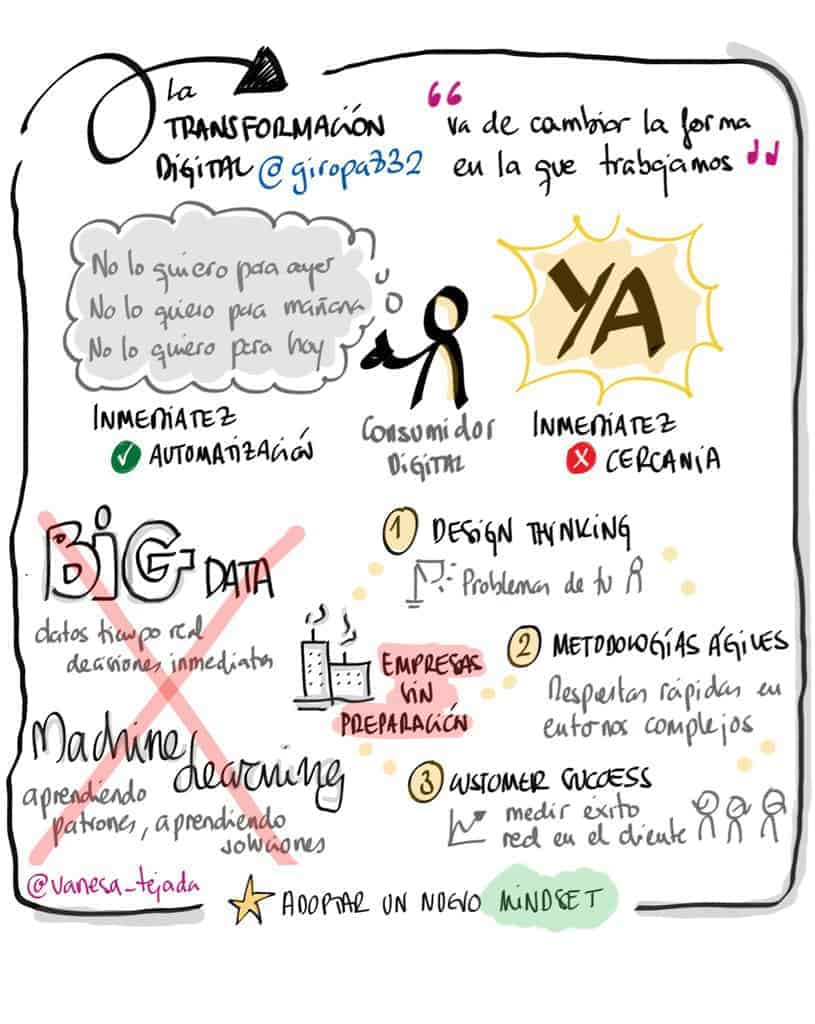 La
TRANSFORMACIÓN
DIGITAL @giropaz32
“ va de cambiar la forma
en la que trabajamos ”
No lo quiero para ayer
No lo quiero para mañana
No lo quiero para hoy
YA
INMEDIATEZ
AUTOMATIZACIÓN
Consumidor
DIGITAL
INMEDIATEZ
X CERCANIA
BIG DATA
datos tiempo real
decisiones inmediatas
Machine Learning
aprendiendo
patrones, aprendiendo
soluciones
EMPRESAS
SIN
PREPARACIÓN
1 DESIGN THINKING
Problemas de tu
2 METODOLOGÍAS ÁGILES
Respuestas rápidas en
entornos complejos
3 CUSTOMER SUCCESS
medir éxito
red en el cliente
@vanesa_tejada
ADOPTAR UN NUEVO MINDSET